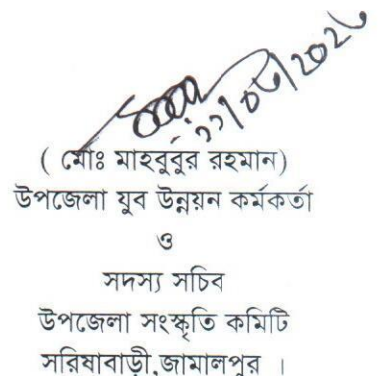 ( মোঃ মাহবুবুর রহমান)
উপজেলা যুব উন্নয়ন কর্মকর্তা
ও
সদস্য সচিব
উপজেলা সংস্কৃতি কমিটি
সরিষাবাড়ী,জামালপুর ।